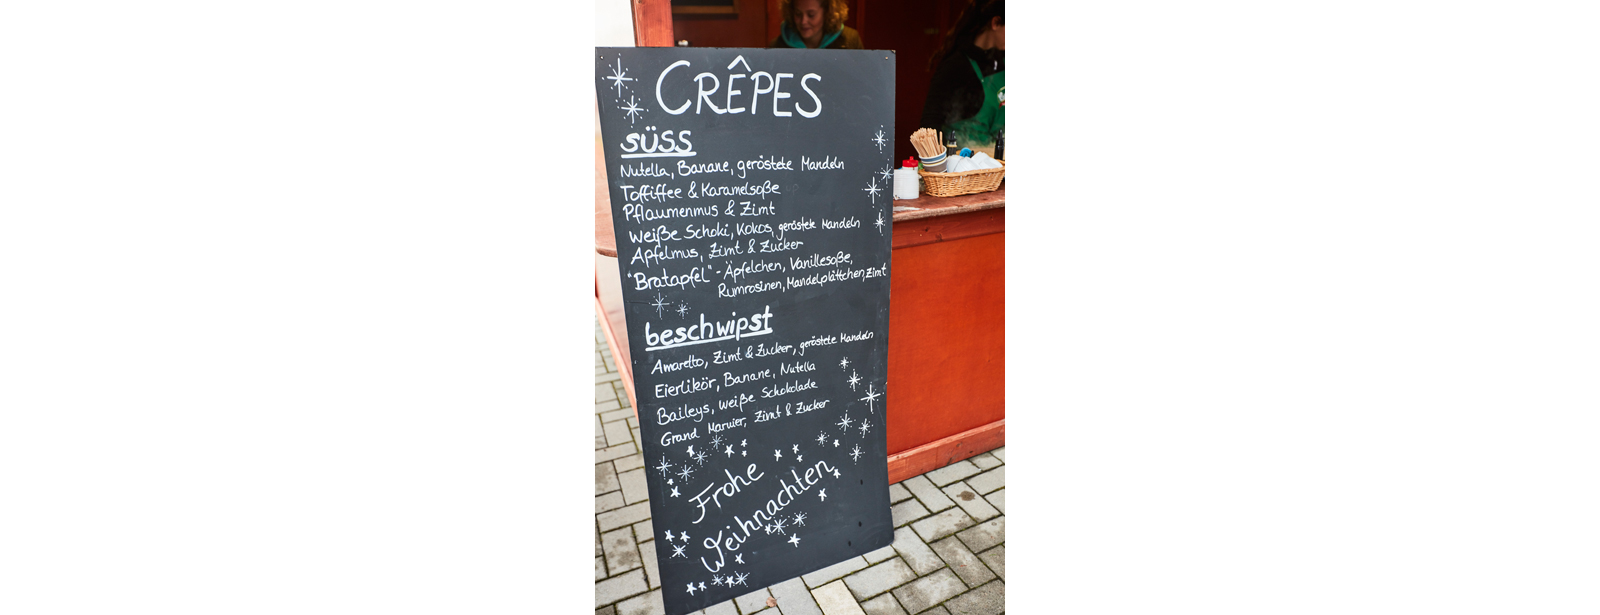 CRÊPES
süss
Nutella, Banane, geröstete Mandeln
Toffiffee & Karamelsoße
Pflaumenmus & Zimt
weiße Schoki, Kokos, geröstete Mandeln
Apfelmus, Zimt & Zucker
"Bratapfel" - Äpfelchen, Vanillesoße,
Rumrosinen, Mandelplättchen, Zimt
beschwipst
Amaretto, Zimt & Zucker, geröstete Mandeln
Eierlikör, Banane, Nutella
Baileys, weiße Schokolade
Grand Marnier, Zimt & Zucker
Frohe
Weihnachten